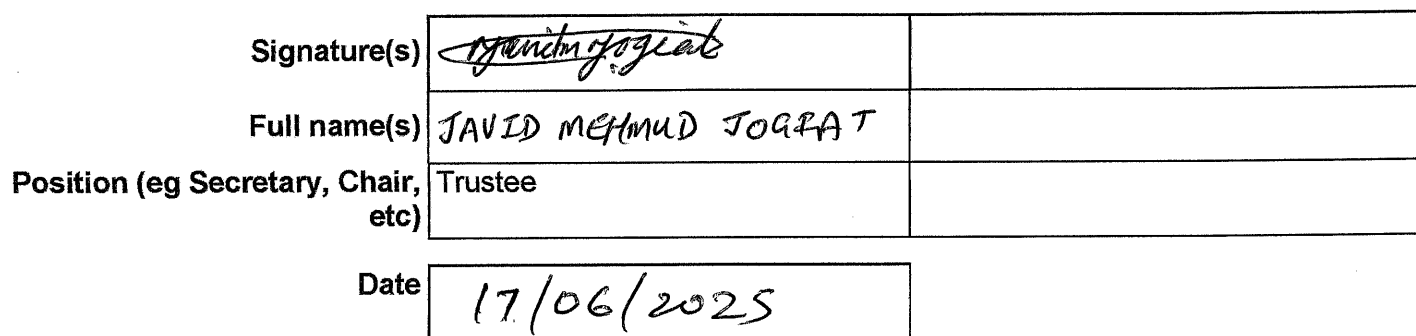 Signature(s)
Full name(s) JAVID MEHMUD JOGIAT
Position (eg Secretary, Chair, Trustee
etc)
Date 17/06/2025